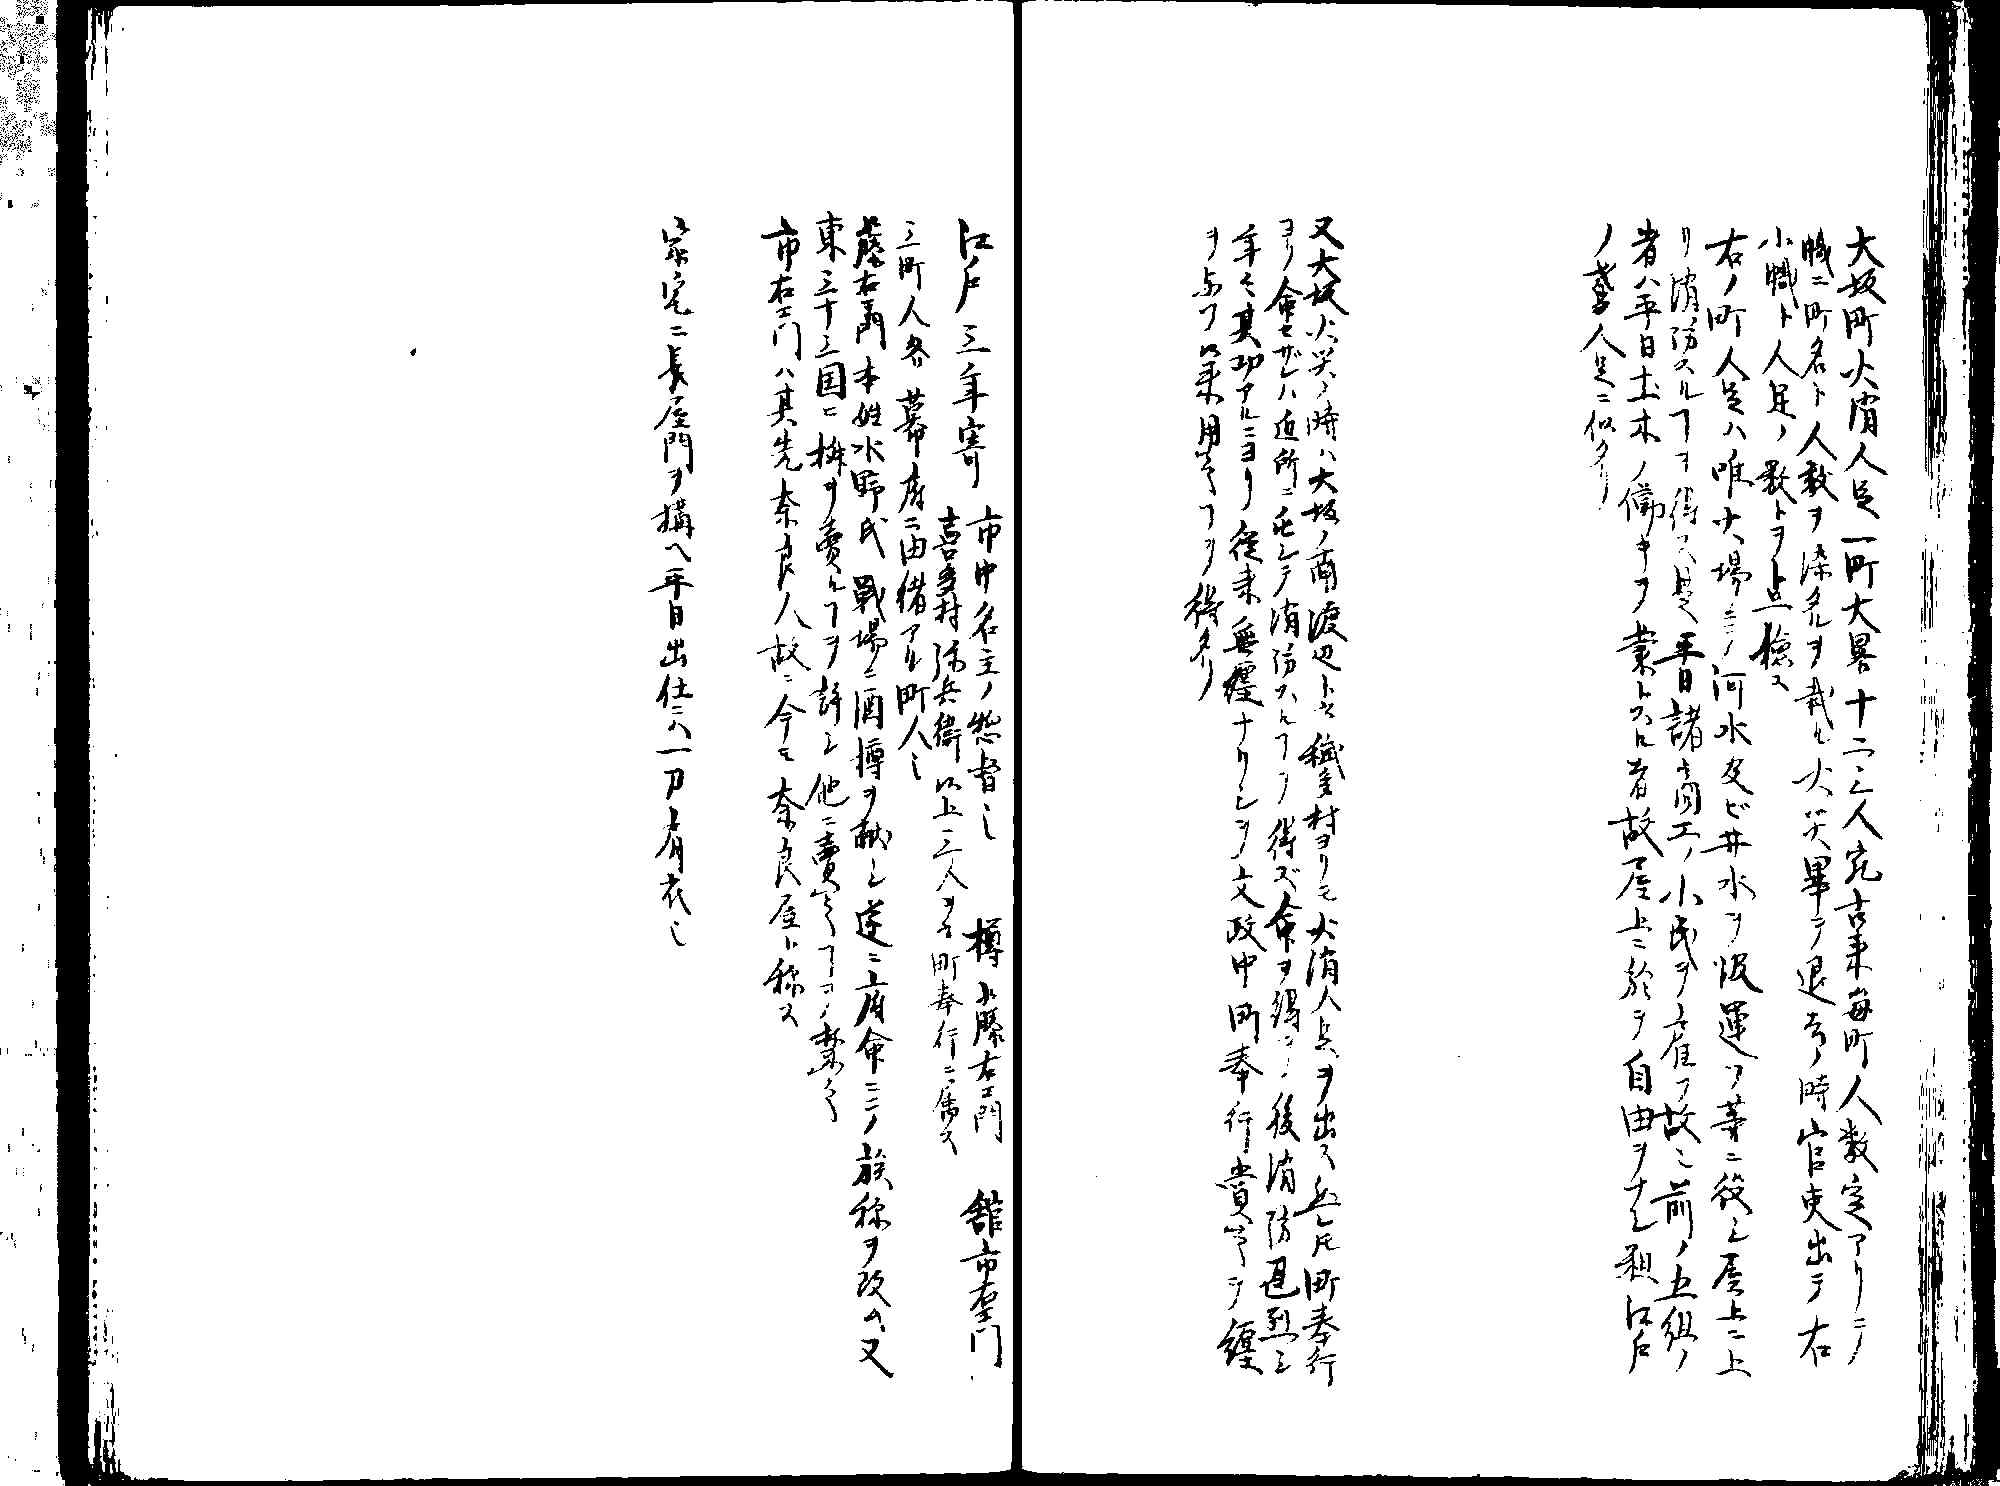 大坂町火消人足一町大畧十二三人宛古来毎町人数定アリテ
幟ニ町名ト人数ヲ染免ヲ載ル火災畢テ退ク時官吏出テ右
小幟ト人足ノ数トヲ点檢ス
右ノ町人足ハ唯火場ニテ河水及ビ井水ヲ汲運フ等ニ役シ屋上ニ上
リ消防スルヿヲ得ス是平日諸商工ノ小民ヲ雇フ故ニ前ノ五組ノ
者ハ平日土木ノ働キヲ業トスル者故屋上ニ於テ自由ヲナシ粗江戸
ノ鳶人足ニ似タリ
又大坂火災ノ時ハ大坂ノ南渡辺ト云穢多村ヨリモ火消人足ヲ出ス然レ𪜈町奉行
ヨリ命セザレハ近所ニ屯シテ消防スルヿヲ得ズ命ヲ得テ後消防甚烈シ
年々其功アルニヨリ従来無纏ナリシヲ文政中町奉行賞之テ纏
ヲ与フ以来用之ヿヲ得タリ
江戸三年寄 市中名主ノ惣督也 樽 藤右エ門 舘市右エ門
喜多村弥兵衛 以上三人ヲ云町奉行ニ属ス
三町人各幕府ニ由緒アル町人也
藤右エ門本姓水野氏戦場ニ酒樽ヲ献シ遂ニ府命ニテ族称ヲ改ム又
東三十三国ニ桝ヲ賣ルヿヲ許シ他ニ賣之ヿヲ禁之
市右エ門ハ其先奈良人故ニ今モ奈良屋ト称ス
家宅ニ長屋門ヲ構ヘ平日出仕ニハ一刀肩衣也